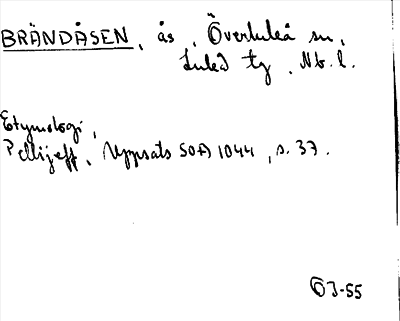 BRÄNDÅSEN, ås, Överluleå sn,
Luleå tg, Nb. l.
Etymologi,
Pellijeff, Uppsats SOA 1044, s. 37.
ÖJ-55